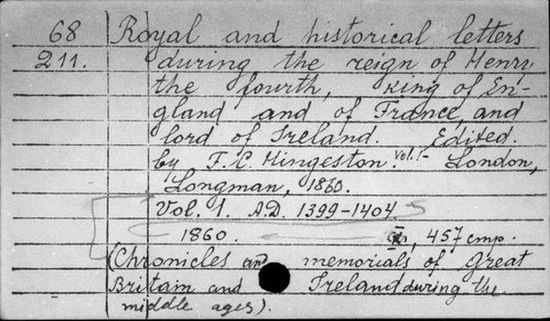 68 Royal and historical letters
211. during the reign of Henry
the fourth, king of En-
gland and of France, and
lord of Ireland. Edited.
by F. C. Hingeston. Vol. 1- London,
Longman, 1860.
Vol. 1. A.D. 1399-1404.
1860. 457 стр.
(Chronicles an memorials of Great
Britain and Ireland during the
middle ages).